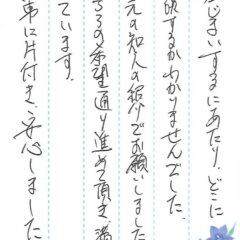 じまいするにあたり、どこに
するかわかりませんでした。
元の知人の紹介でお願いしました
ちらの希望通り進めて頂き、満
ています。
第に片付き、安心しました